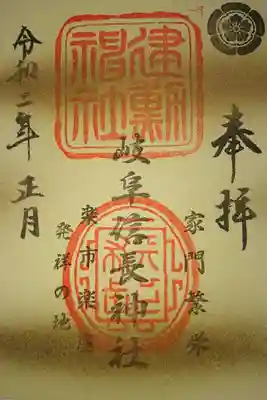 奉拝
家門繁栄
建勲
神社
岐阜信長神社
楽市楽座
発祥の地
令和二年 正月